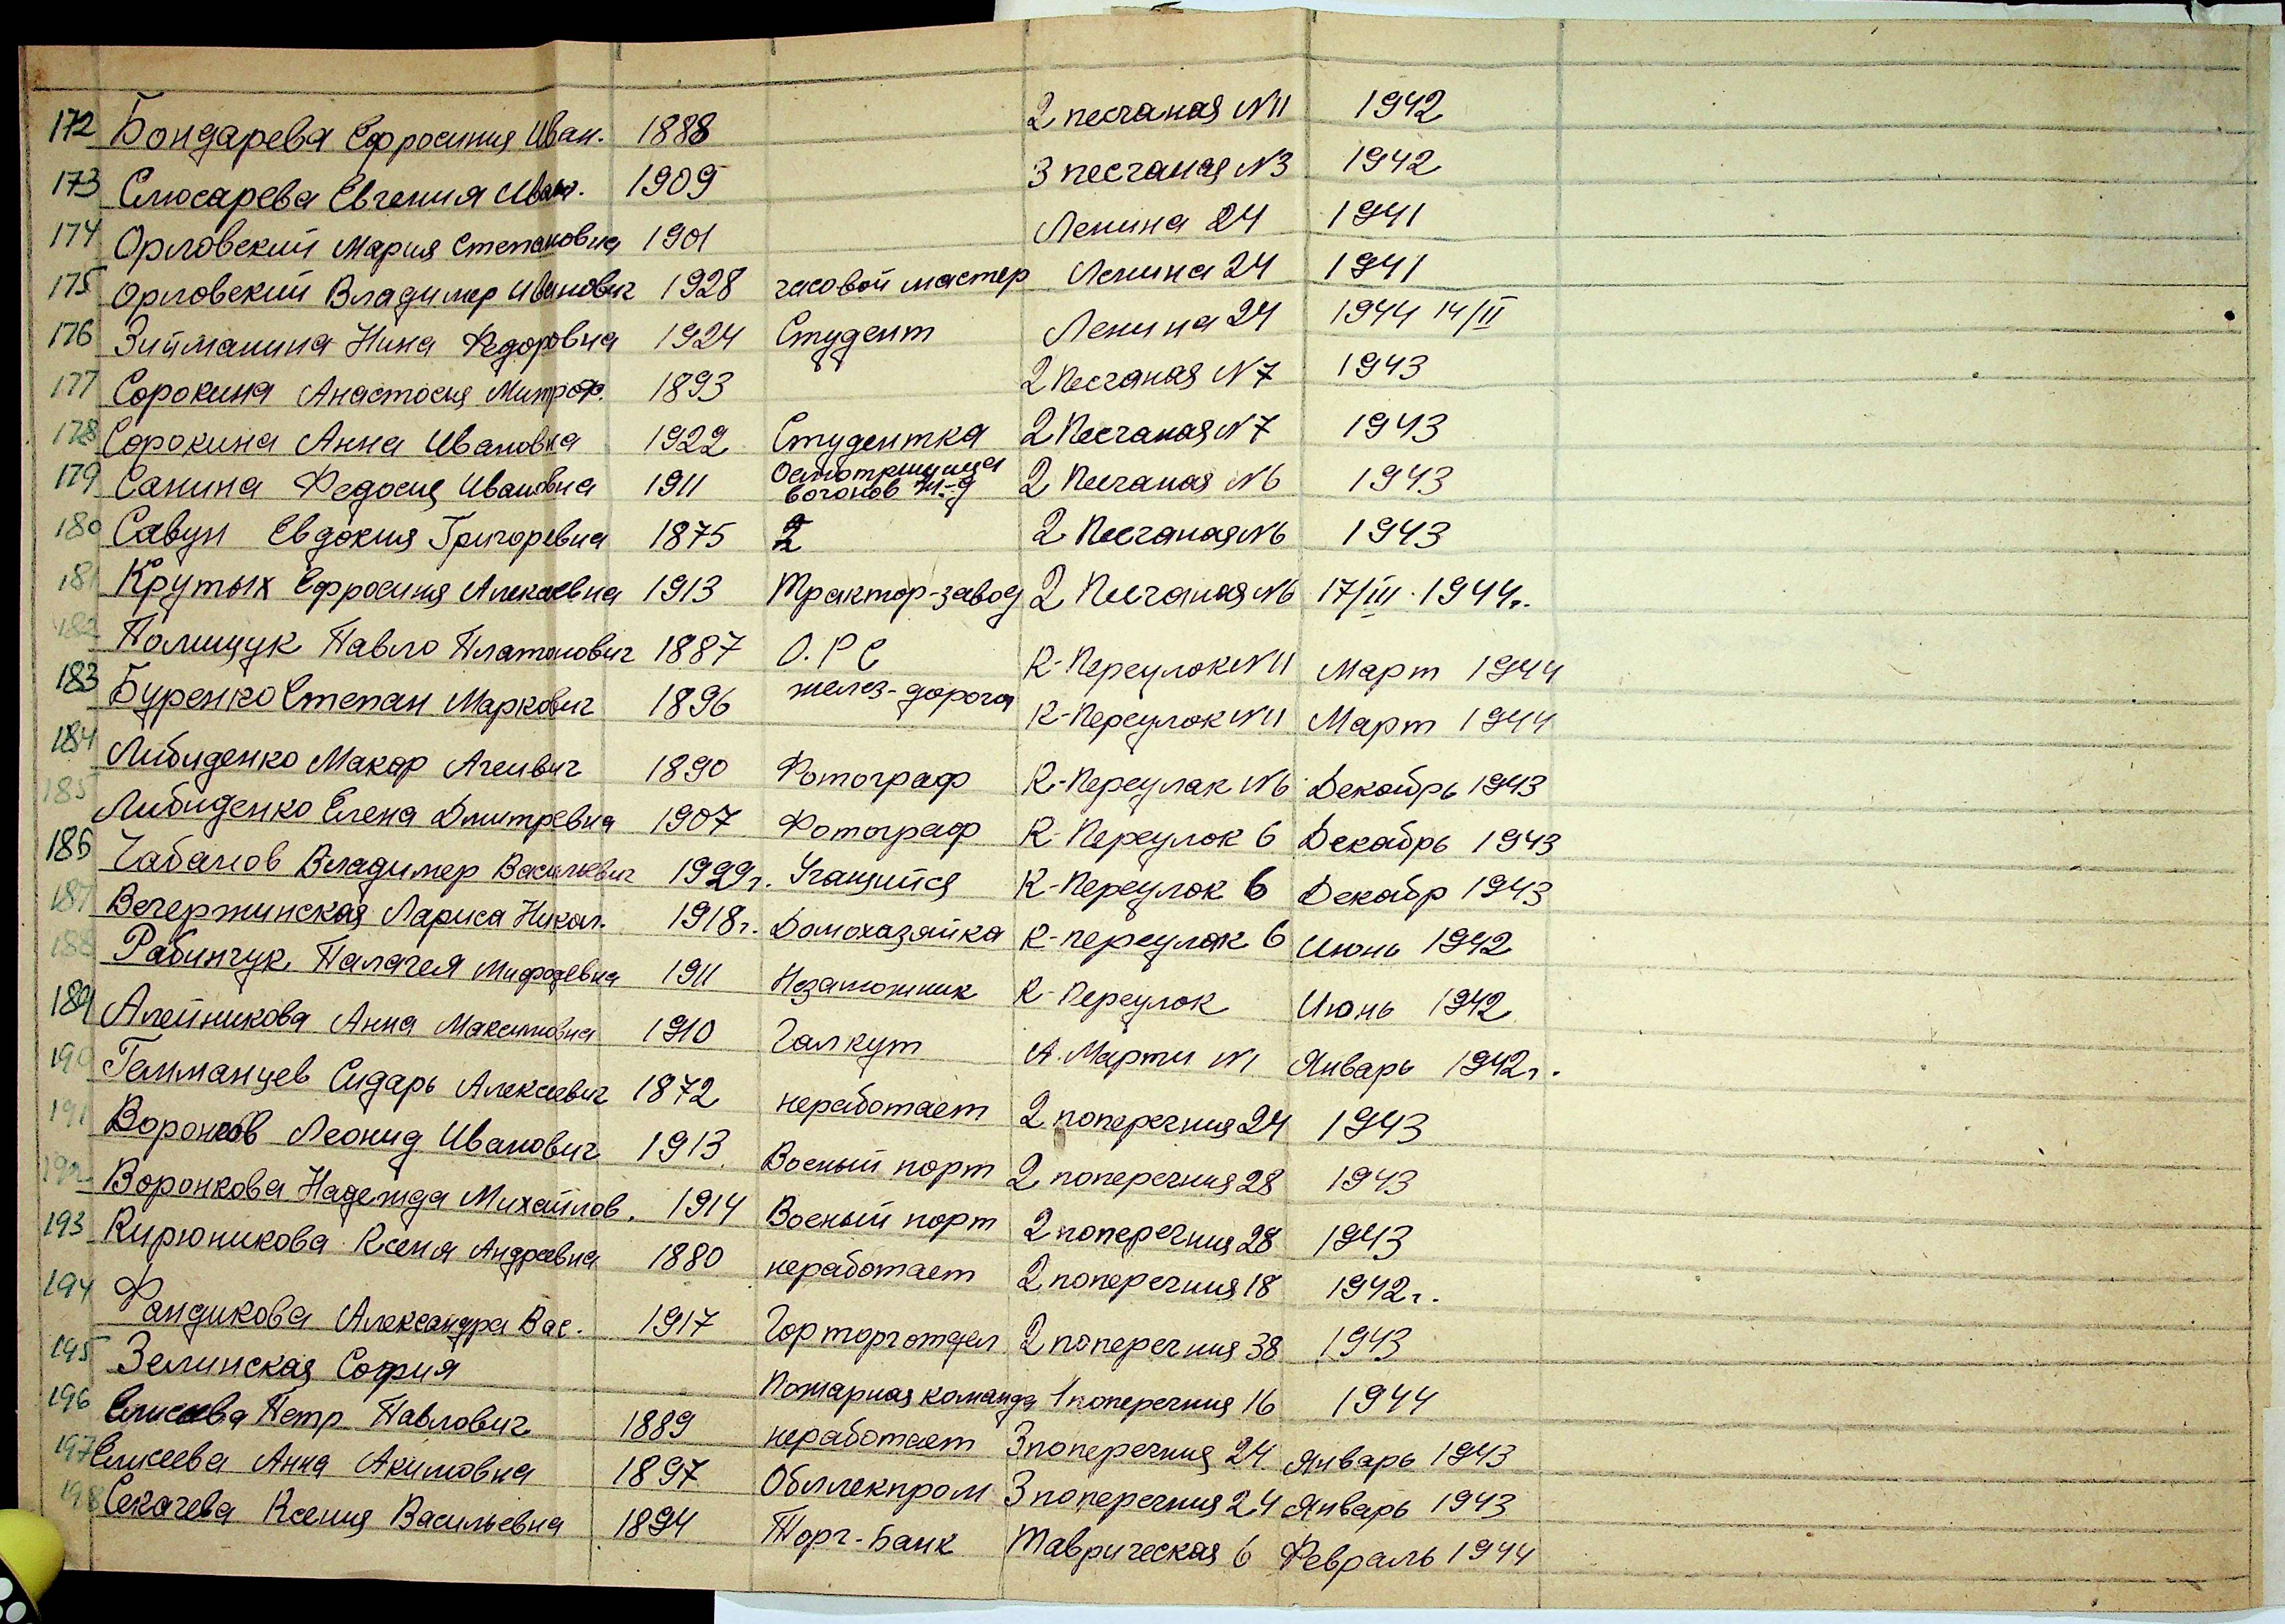 172 Бондарева Ефросиния Иван. 1888 2 песчаная №11 1942
173 Слюсарева Евгения Иван. 1909 3 песчаная №3 1942
174 Орловский Мария Степановна 1901 Ленина 24 1941
175 Орловский Владимер Иванович 1928 часовой мастер Ленина 24 1941
176 Зиитманина Нина Федоровна 1924 Студент Ленина 24 1944 14/II
177 Сорокина Анастосия Митроф. 1893 2 Песчаная №7 1943
178 Сорокина Анна Ивановна 1922 Студентка 2 Песчаная №7 1943
179 Санина Федосия Ивановна 1911 Осмотрщица вогонов ж-д 2 Песчаная №6 1943
180 Савун Евдокия Григоревна 1875 2 2 Песчаная №6 1943
181 Крутых Ефросиния Алексевна 1913 Трактор-завод 2 Песчаная №6 17/III 1944г.
182 Полищук Павло Платонович 1887 О.Р.С К-Переулок №11 Март 1944
183 Буренко Степан Маркович 1896 желез-дорога К-Переулок №11 Март 1944
184 Либиденко Макар Агеивич 1890 Фотограф К-Переулак №6 Декабрь 1943
185 Либиденко Елена Дмитревна 1907 Фотограф К-Переулок 6 Декабрь 1943
186 Чабанов Владимер Васильевич 1929г. Учащийся К-Переулок 6 Декабр 1943
187 Вечержинская Лариса Никол. 1918г. Домохазяйка К-переулок 6 Июнь 1942
188 Рабинчук Палагея Мифодевна 1911 Незаможник К-Переулок Июнь 1942
189 Алейникова Анна Максимовна 1910 Галкут А. Марти №1 Январь 1942г.
190 Гетманцев Сидарь Алексеевич 1872 неработает 2 поперечния 24 1943
191 Воронков Леонид Иванович 1913 Военый порт 2 поперечния 28 1943
192 Воронкова Надежда Михайлов. 1914 Военый порт 2 поперечния 28 1943
193 Кирюникова Ксеня Андреевна 1880 неработает 2 поперечния 18 1942г.
194 Фандикова Александра Вас. 1917 Горторготдел 2 поперечния 38 1943
195 Зелинская София Пожарная команда 1 поперечния 16 1944
196 Елисеева Петр Павлович 1889 неработает 3 поперечния 24 Январь 1943
197 Елисеева Анна Акимовна 1897 Облекпром 3 поперечния 24 Январь 1943
198 Секачева Ксения Васильевна 1894 Торг-Банк Таврическая 6 Февраль 1944